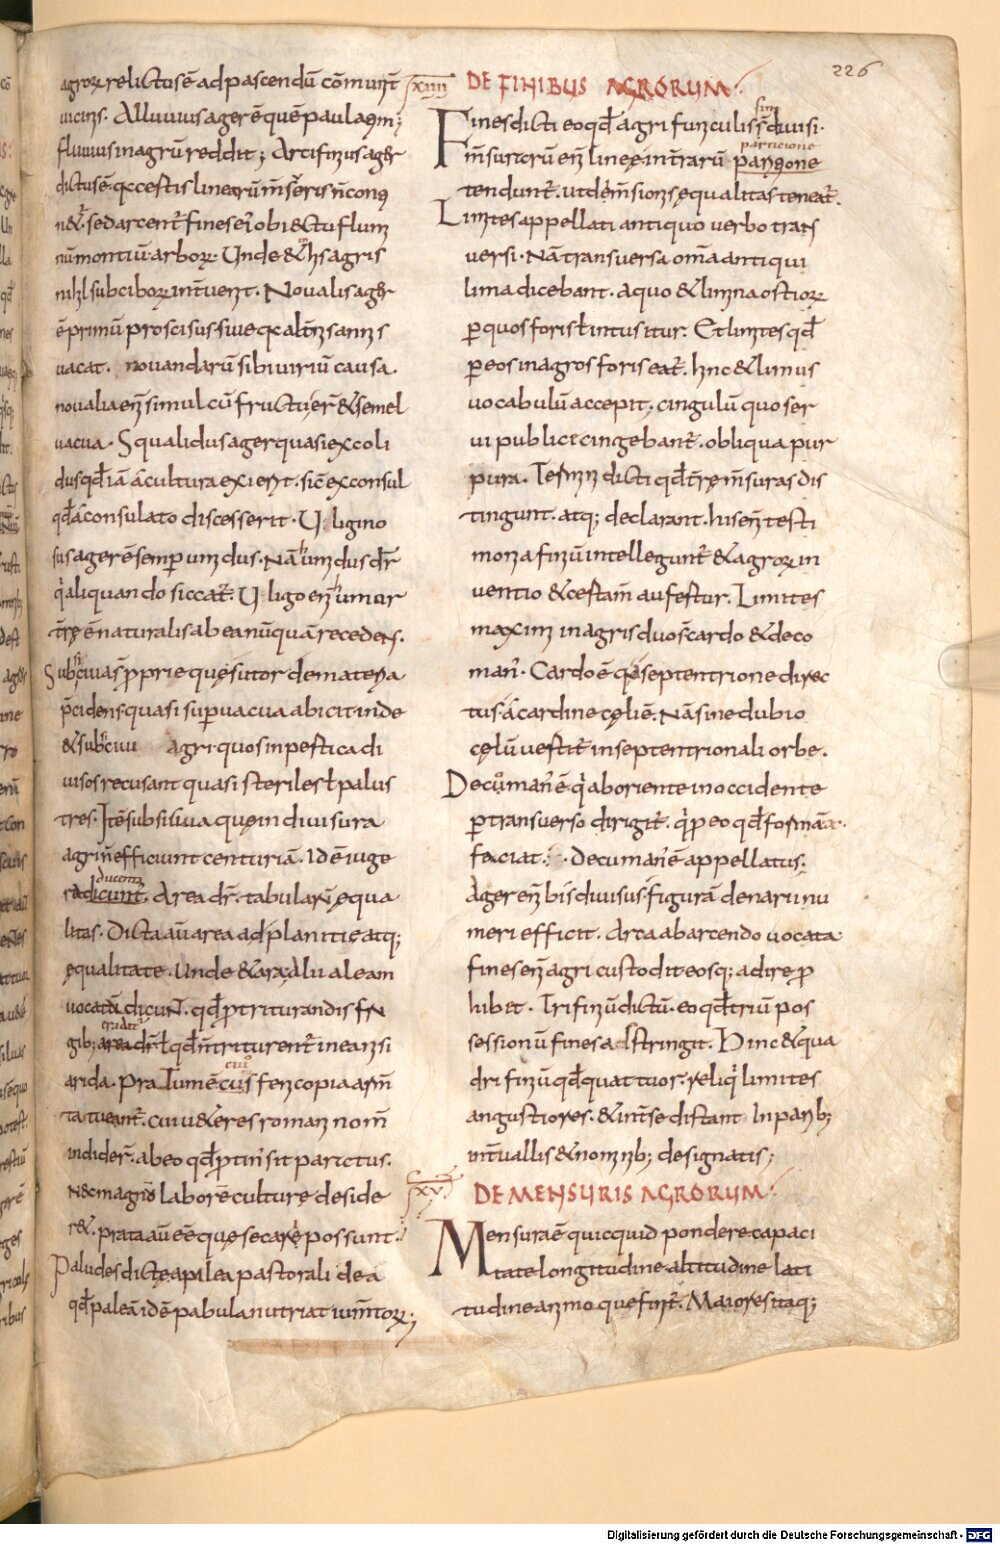 agroꝝ relictus ē ad pascendū cōmunit̄
uicinis. Alluuius ager ē quē paulatim
fluuius in agrū reddit; Arcifinius ager
dictus ē q̇ a certis linearū m̄suris ñ conti
n& sed arcent̄ fines ei obiectu fluminū
nū montiū arboꝝ. Unde & in his agris
nihil subciboꝝ interuenit. Noualis ager
ē primū proscisus siue q̇ alt̄nis annis
uacat. nouandarū sibi uiriū causa.
noualia enī simul cū fructu er̄ & semel
uacua. Squalidus ager quasi excoli
dus qđ iā a cultura exierit. sic exconsul
qđ a consulato discesserit. Uligino
sus ager ē semp umidus. Nā humidus dr̄
q̇ aliquando siccat̄. Uligo enī humor
t̄rę ē naturalis ab ea nūquā recedens.
Subsiciuas p̄prie quę sutor de materia
p̄cidens quasi supuacua abicit inde
& subsiciui agri quos in pertica di
uisos recusant quasi steriles ł palus
tres. Itē subsisiua quę in diuisura
agri ñ efficiunt centuriā. Id ē iuge
ra ducenta. Area dr̄. tabularū ęqua
litas. Dicta aū area ad planitię atq;
ęqualitate. Unde & ara. Alii aleam
uocatā dicunt. qđ p̄ triturandis fru
gib; eradat̄ ł qđ ñ triturent̄ in ea nisi
arida. Pratum ē cuius feni copia arm̄
ta tueant̄. cui ueteres romani nom̄
indider̄. ab eo qđ p̄tin sit paratus.
Nec magnū laborē culturę deside
r&. prata aū ēē quę secari possunt.
Paludes dictę a pilea pastorali idea
qđ paleā idē pabula nutriat ium̄toꝝ;
226
xiiii DE FINIBUS AGRORUM.
Fines dicti eo qđ agri funiculis sint diuisi.
m̄surarū enī lineę in t̄rarū particione
tendunt̄. ut dim̄sionis ęqualitas teneat̄.
Limites appellati antiquo uerbo trans
uersi. Nā transuersa om̄a antiqui
lima dicebant. a quo & limina ostioꝝ
p quos foris ł intus itur. Et limites qđ
p eos in agros foris eat̄. hinc & limus
uocabulū accepit. cingulū quo ser
ui publici cingebant̄. obliqua pur
pura. Termini dicti qđ t̄rę m̄suras dis
tingunt. atq; declarant. his enī testi
monia finiū intellegunt̄ & agroꝝ in
tentio & certam̄ aufertur. Limites
maximi in agris duo s̄ cardo & deco
man. Cardo ē q̇ a septentrione direc
tus a cardine cęli ē. Nā sine dubio
cęlū uertit̄ in septentrionali orbe.
Decuman ē q̇ ab oriente in occidente
p transuerso dirigit̄. q̇ p eo qđ formā x.
faciat. decuman ē appellatus.
Ager enī bis diuisus figurā denarii nu
meri efficit. Arca ab arcendo uocata
fines enī agri custodit eosq; adire p
hibet. Trifiniū dictū. eo qđ triū pos
sessionū fines adstringit. Hinc & qua
drifiniū qđ quattuor. reliq̇ limites
angustiores. & int̄ se distant inparib;
int̄uallis & nominib; designatis;
xv. DE MENSURIS AGRORUM.
Mensura ē quicquid pondere capaci
tate longitudine altitudine lati
tudine animoque finit̄. Maiores itaq;
Digitalisierung gefördert durch die Deutsche Forschungsgemeinschaft - DFG